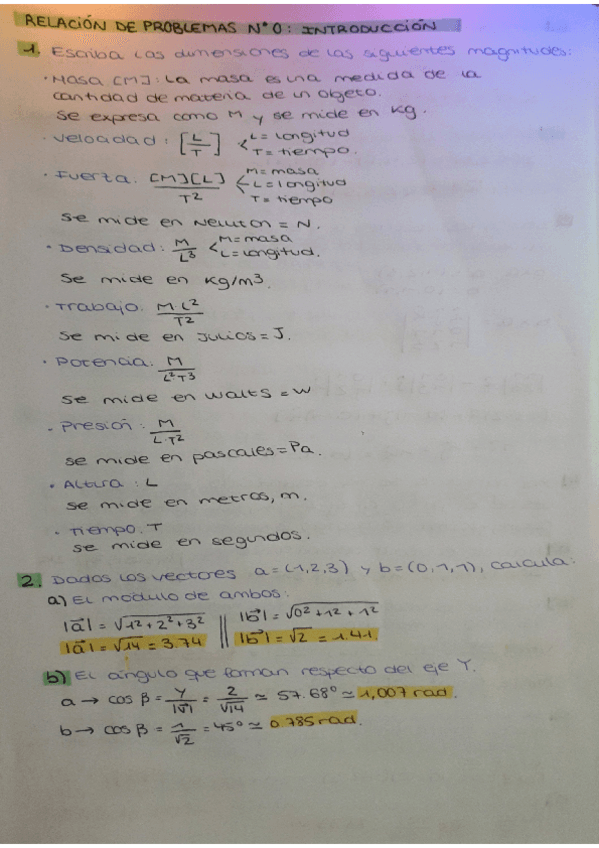 RELACIÓN DE PROBLEMAS Nº0: INTRODUCCIÓN
1. Escriba las dimensiones de las siguientes magnitudes:
· Masa [M]: La masa es una medida de la
cantidad de materia de un objeto.
Se expresa como M y se mide en kg.
· Velocidad: [L/T] < L = longitud
T = tiempo.
· Fuerza: [M][L]/T² < M = masa
L = longitud
T = tiempo
Se mide en Newton = N.
· Densidad: M/L³ < M = masa
L = longitud.
Se mide en kg/m³.
· Trabajo: M·L²/T²
Se mide en Julios = J.
· Potencia: M/L²T³
Se mide en walts = W
· Presión: M/L·T²
Se mide en pascales = Pa.
· Altura: L
Se mide en metros, m.
· Tiempo. T
Se mide en segundos.
2. Dados los vectores a = (1,2,3) y b = (0,1,1), calcula:
a) El módulo de ambos:
|a⃗| = √1²+2²+3² || |b⃗| = √0²+1²+1²
|a⃗| = √14 = 3.74 || |b⃗| = √2 = 1.41.
b) El ángulo que forman respecto del eje Y.
a → cos β = Y/|v⃗| = 2/√14 ≃ 57.68º ≃ 1,007 rad.
b → cos β = 1/√2 = 45º ≃ 0.785 rad.